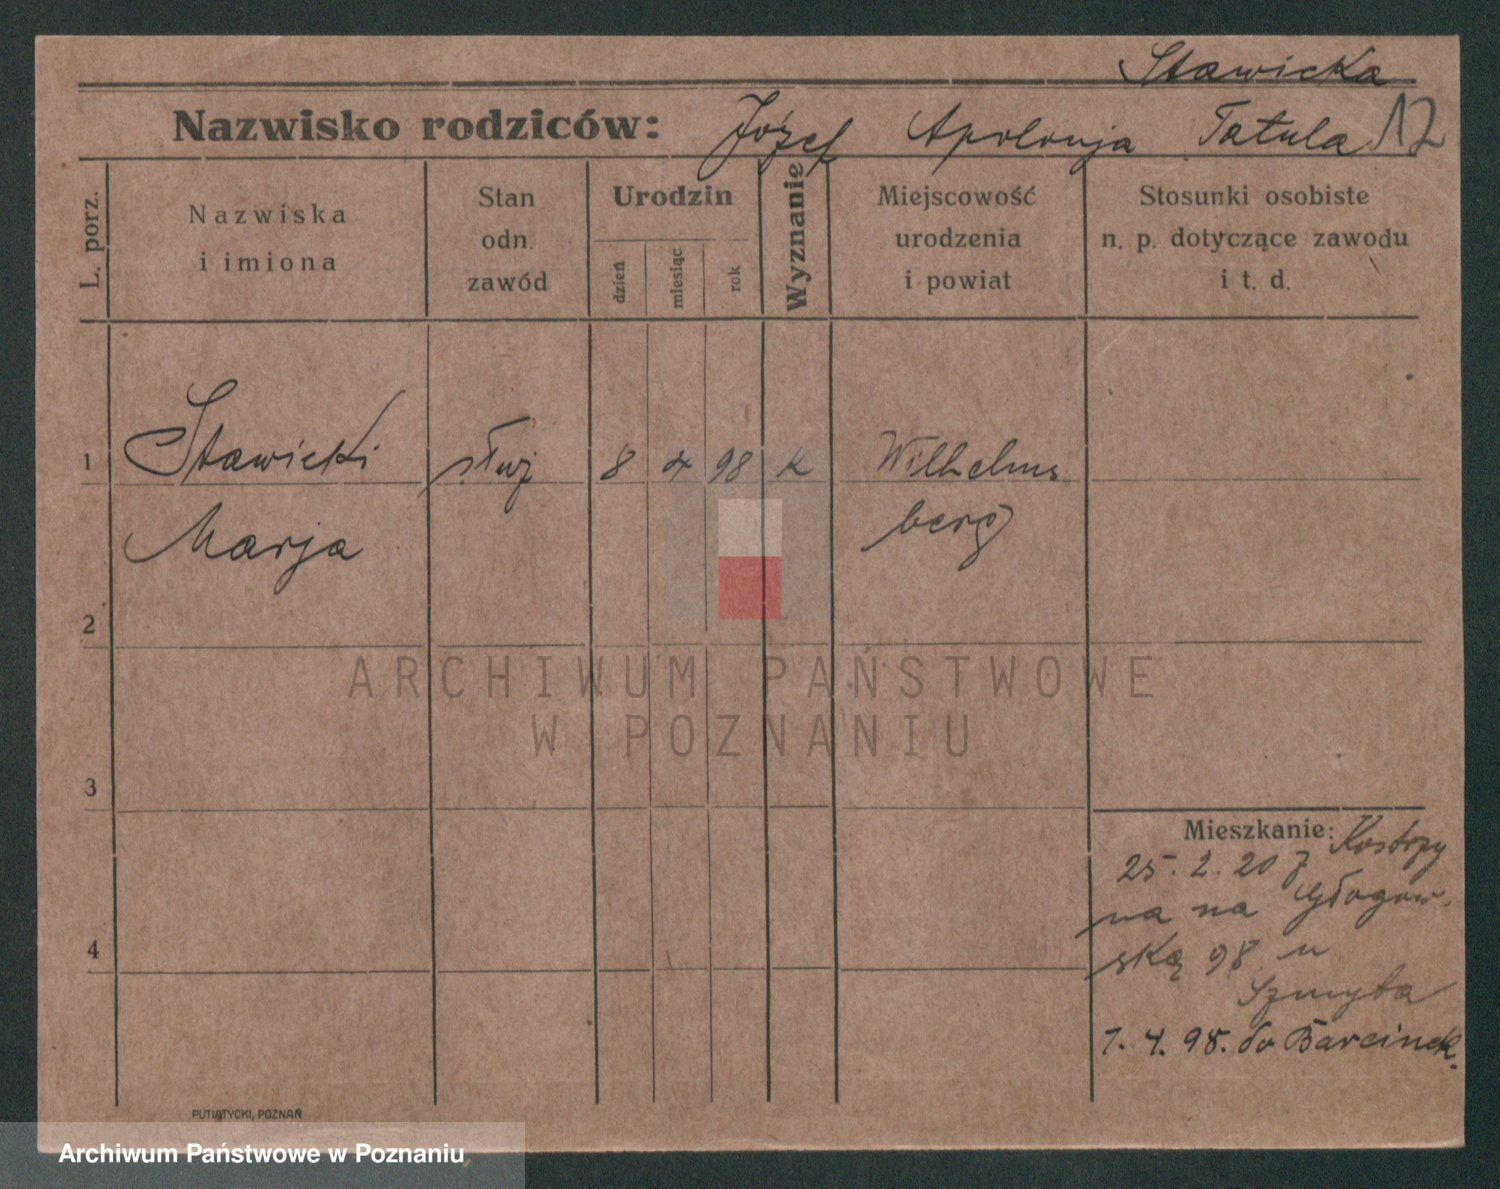 Stawicka
Nazwisko rodziców: Józef Apolonja Tatula 12
L. porz.
Nazwiska
i imiona
Stan
odn.
zawód
Urodzin
dzień
miesiąc
rok
Wyznanie
Miejscowość
urodzenia
i powiat
Stosunki osobiste
n. p. dotyczące zawodu
i t. d.
1 Stawicki służ 8 4 98 k Wilhelms
Marja berg
2
3
4
Mieszkanie: Kostrzy
25. 2. 20 z
na na Głogow.
ską 98 u
Szmyta
1. 4. 98. do Barcinek.
PUTIATYCKI, POZNAŃ
ARCHIWUM PAŃSTWOWE
W POZNANIU
Archiwum Państwowe w Poznaniu